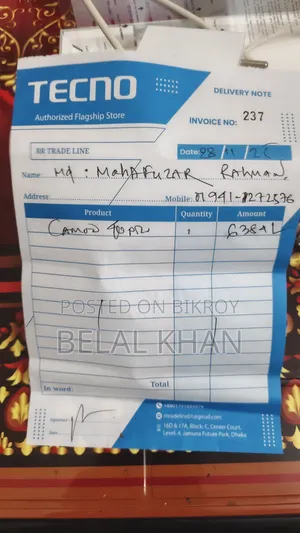 TECNO
Authorized Flagship Store
DELIVERY NOTE
INVOICE NO: 237
RR TRADE LINE
Date:
Name: Md: MahAFUZAR Rahman
Address: Mobile: 01941-
Product Quantity Amount
Camon 1
POSTED ON BIKROY
BELAL KHAN
In word: Total
Signature:
16D & 17A, Block: C, Center Court,
Level: 4, Jamuna Future Park, Dhaka